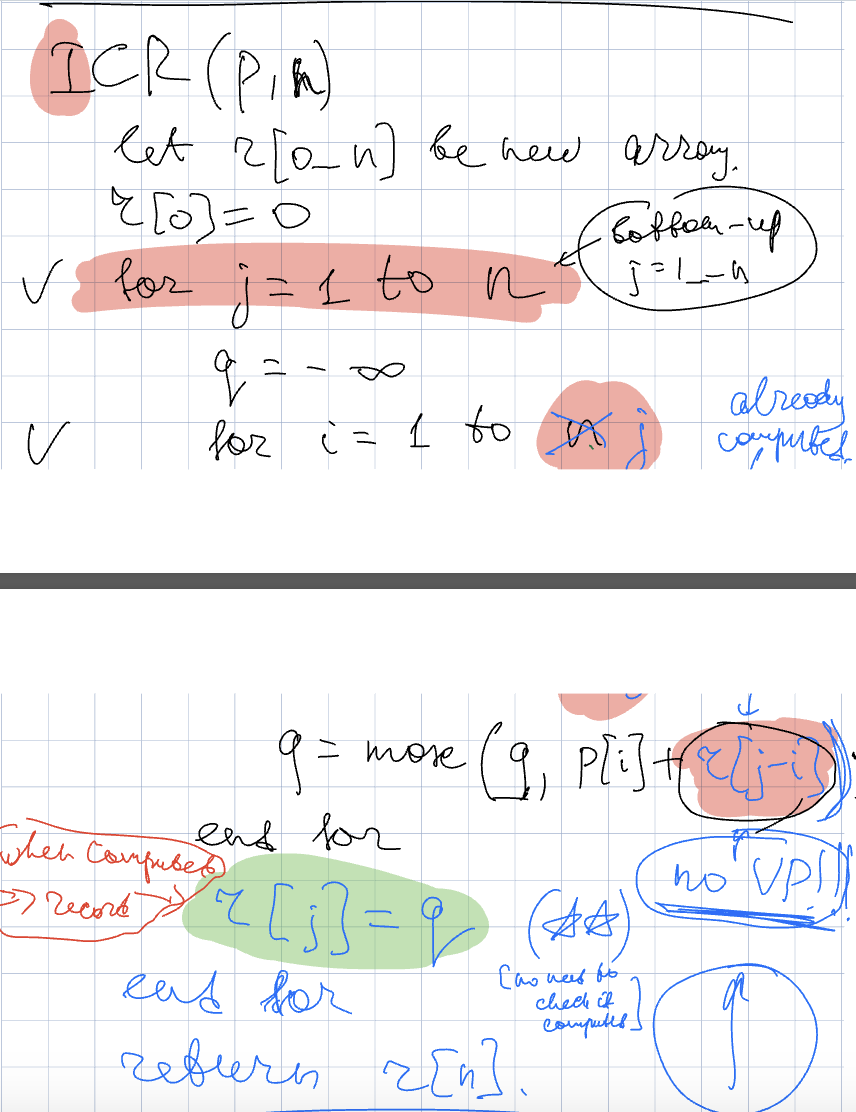 ICR (P, n)
let r[0_n] be new array.
r[0] = 0
bottom-up
j = 1_n
✓ for j = 1 to n
q = - ∞
✓ for i = 1 to n j
already
computed
q = max (q, P[i] + r[j-i])
end for
when computed
=> record
r[j] = q
no VP!!!
(☆☆)
[no need to
check if
computed]
end for
return r[n].